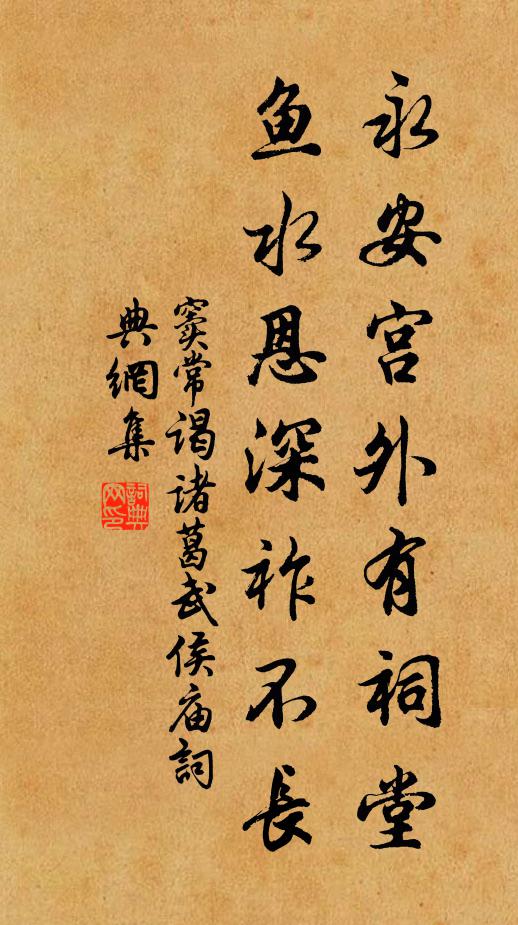 永安宫外有祠堂
鱼水恩深祚不長
窦常谒诸葛武侯庙詞
典網集
詞典
网印